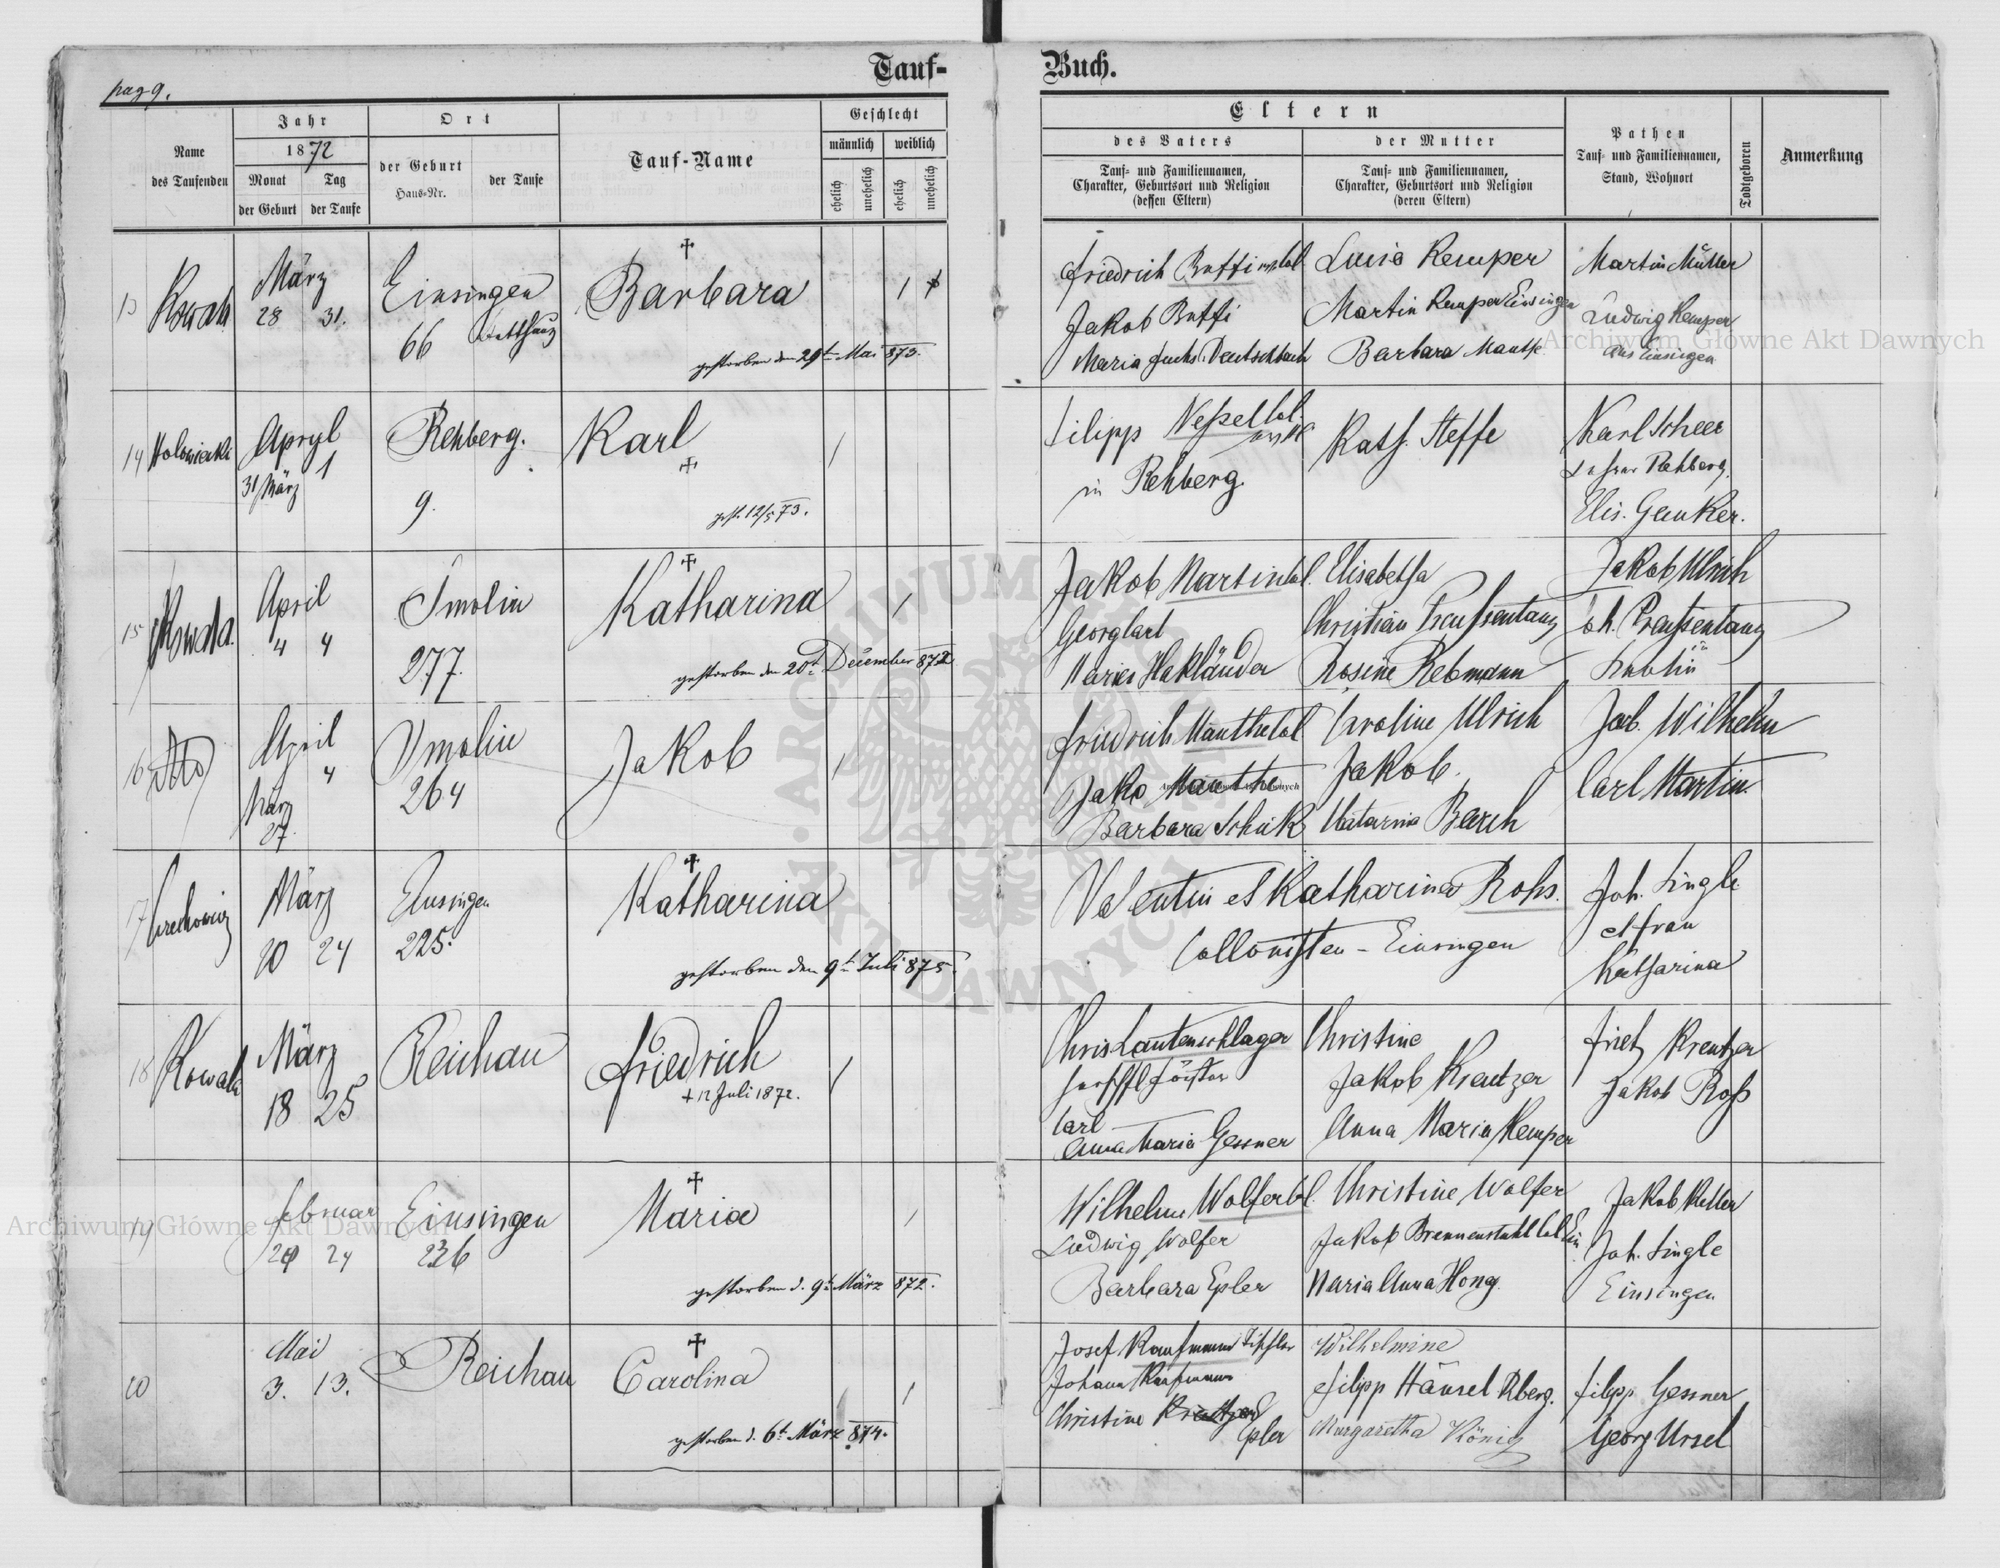 pag 9.
Tauf-Buch.
Name
des Taufenden
Jahr
1872
Monat Tag
der Geburt der Taufe
Ort
der Geburt
Haus-Nr.
der Taufe
Tauf-Name
Geschlecht
männlich weiblich
ehelich unehelich ehelich unehelich
Eltern
des Vaters
Tauf- und Familiennamen,
Charakter, Geburtsort und Religion
(dessen Eltern)
der Mutter
Tauf- und Familiennamen,
Charakter, Geburtsort und Religion
(deren Eltern)
Pathen
Tauf- und Familiennamen,
Stand, Wohnort
Todtgeboren
Anmerkung
13 Kowala
März
28 31.
Einsingen
66 Betthaus
†
Barbara
gestorben den 29t Mai 873.
1
Friedrich Buffi
Jakob Buffi
Maria Fuchs Deutschbach
Luise Kemper
Martin Kemper Einsingen
Barbara Manthe
Martin Müller
Ludwig Kemper
aus Einsingen
14
Apryl
31 März 1
Rehberg.
9.
Karl
†
gest. 12/5 73.
1
Filipp Neßel Col.
in Rehberg.
Kath. Steffe
Karl Scheer
Lehrer Rehberg.
Elis. Ganker.
15 Kowala
April
4 4
Smolin
277.
†
Katharina
gestorben den 20t December 872
1
Jakob Martin Col.
Georg Carl
Maria Hakländer
Elisabetha
Christian Preußentanz
Rosine Rebmann
Jakob Ulrich
Joh. Preußentanz
16
April
4
März
27.
Smolin
264
Jakob
1
Friedrich Manthe Col
Jako Manthe
Barbara Schick
Caroline Ulrich
Jakob.
Katarina Bach
Jak. Wilhelm
Carl Martin
17
März
20 24
Einsingen
225.
†
Katharina
gestorben den 9t Juli 875.
Valentin et Katharina Rohs.
Collonisten - Einsingen
Joh. Lingle
et frau
Katharina
18 Kowala
März
18 25
Reichau
Friedrich
† 12 Juli 1872.
1
Chris Lautenschlager
Förster
Carl
Anna Maria Gessner
Christine
Jakob Kreutzer
Anna Maria Kemper
Frietz Kreutzer
Jakob Roß
19
Februar
20 24
Einsingen
236
†
Maria
gestorben d. 9t März 872.
1
Wilhelm Wolfer Col.
Ludwig Wolfer
Barbara Epler
Christine Wolfer
Jakob Brennenstuhl Col. Ein
Maria Anna Hong
Jakob Keller
Joh. Lingle
Einsingen
20
Mai
3. 13.
Reichau
†
Carolina
gestorben d. 6t März 874.
1
Josef Kaufmann Tischler
Johann Kaufmann
Christine Kreutzer
Epler
Wilhelmine
Filipp Hänsel Rberg.
Margaretha König
Filipp Gessner
Georg Ursel
Archiwum Główne Akt Dawnych
Archiwum Główne Akt Dawnych